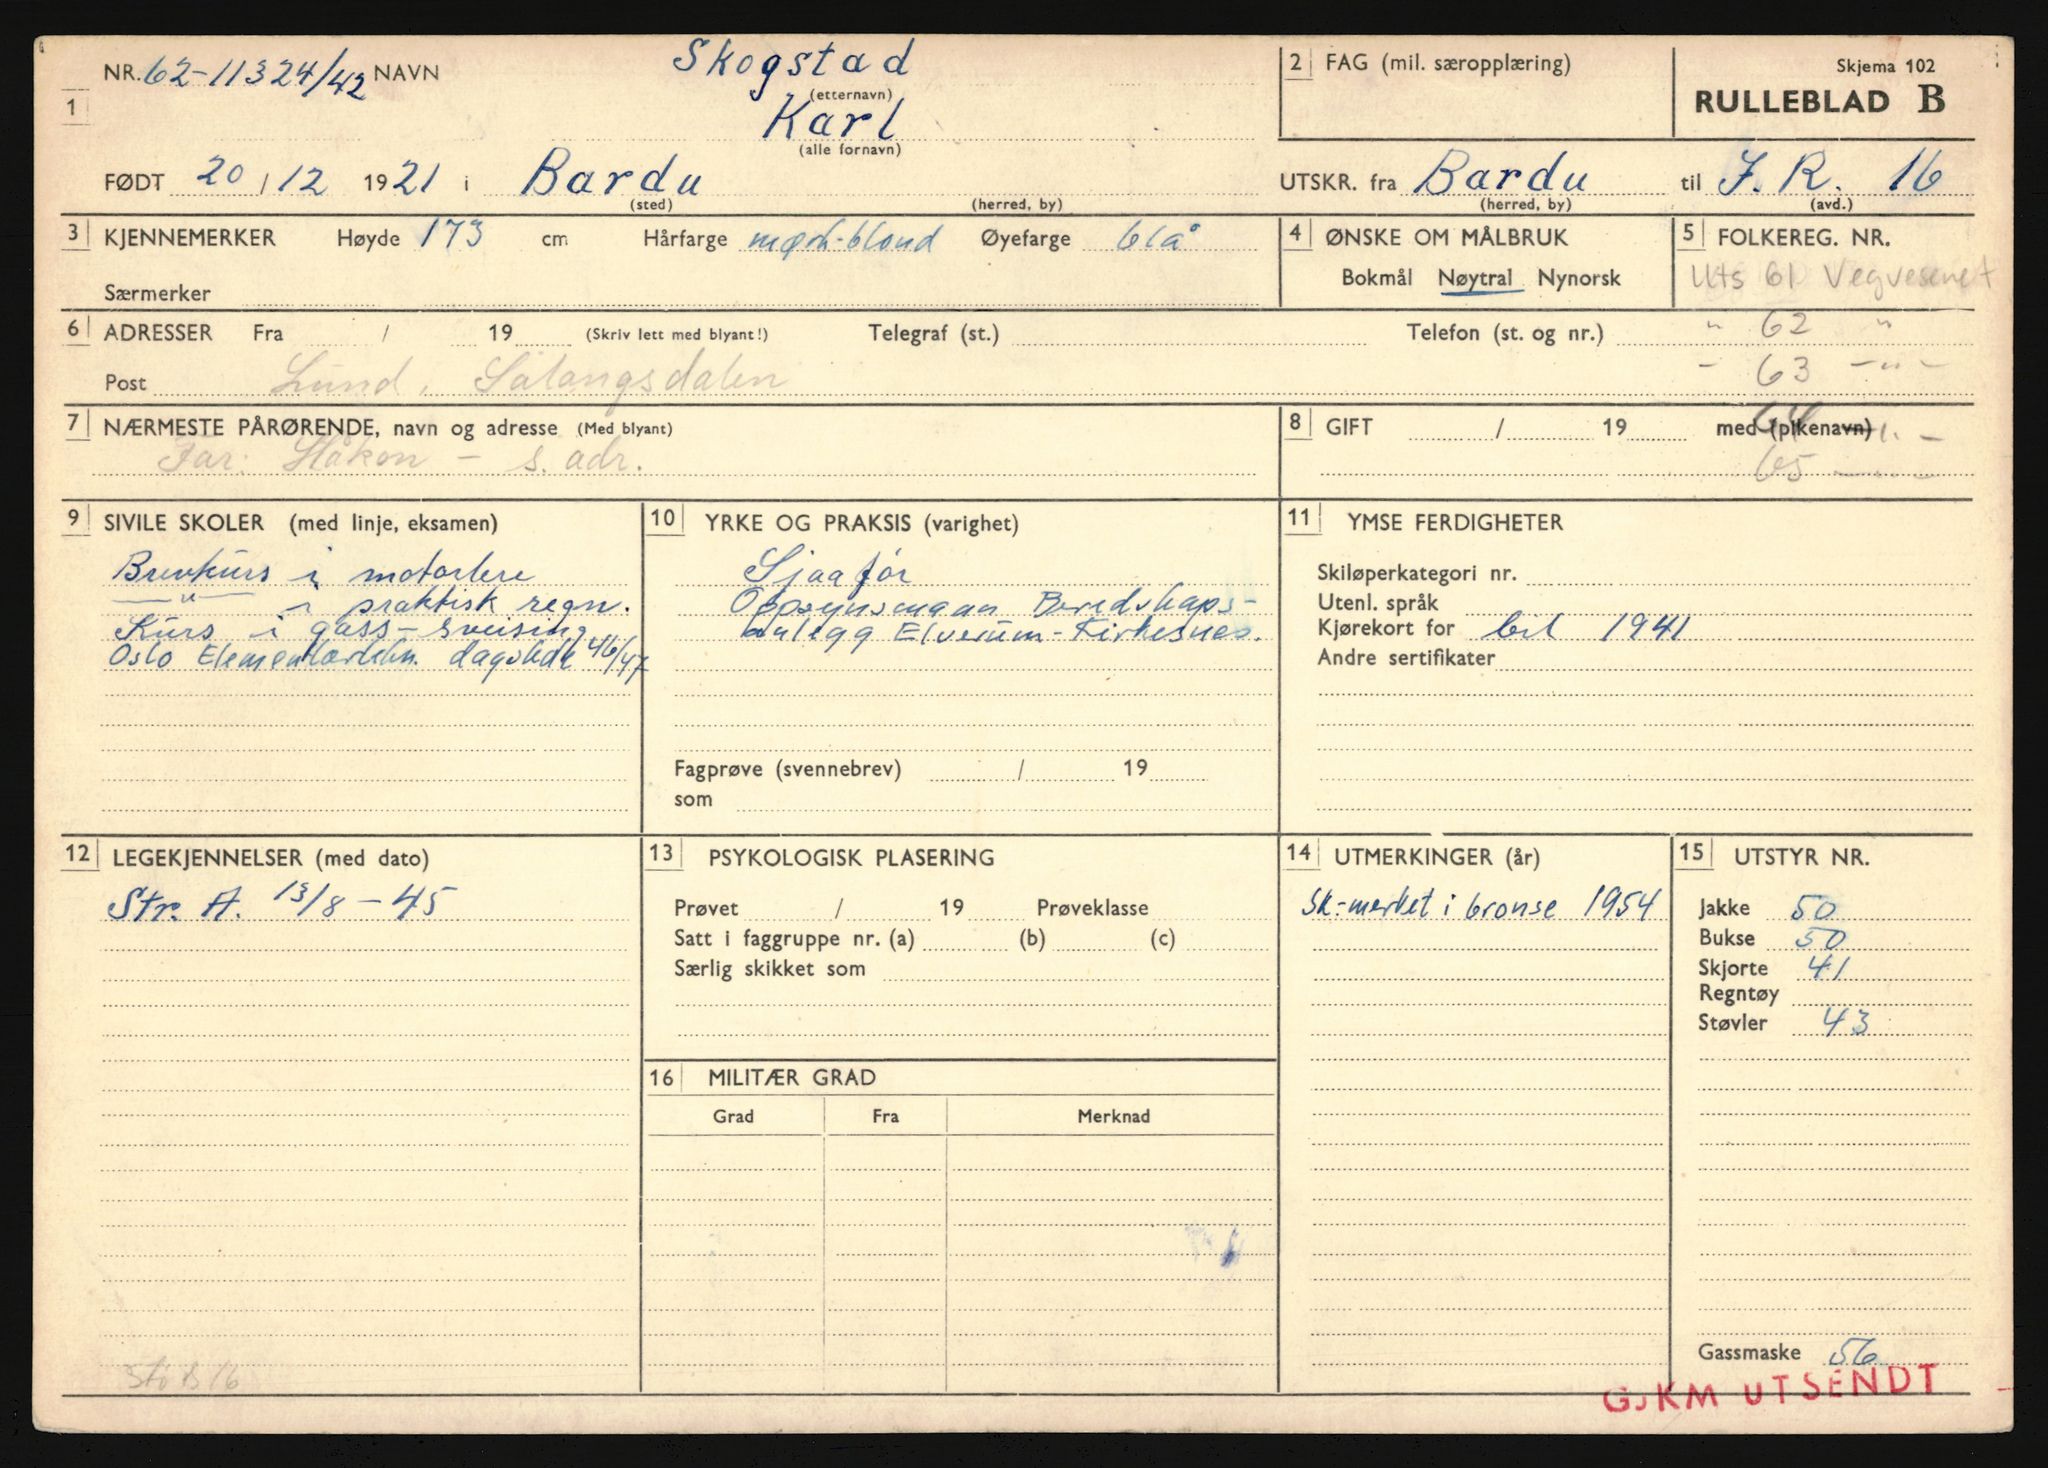 NR. 62-11324/42 NAVN Skogstad
(etternavn)
1 Karl
(alle fornavn)
FØDT 20/12 1921 i Bardu
(sted) (herred, by)
2 FAG (mil. særopplæring)
Skjema 102
RULLEBLAD B
UTSKR. fra Bardu til J.R. 16
(herred, by) (avd.)
3 KJENNEMERKER Høyde 173 cm Hårfarge mørk-blond Øyefarge blå
Særmerker
4 ØNSKE OM MÅLBRUK
Bokmål Nøytral Nynorsk
5 FOLKEREG. NR.
Uts 61 Vegvesenet
" 62 "
- 63 -"-
64 -"-
65 -"-
6 ADRESSER Fra / 19 (Skriv lett med blyant!) Telegraf (st.) Telefon (st. og nr.)
Post Lund, Salangsdalen
7 NÆRMESTE PÅRØRENDE, navn og adresse (Med blyant)
Far: Håkon - s. adr.
8 GIFT / 19 med (pikenavn)
9 SIVILE SKOLER (med linje, eksamen)
Brevkurs i motorlere
—"— i praktisk regn.
Kurs i gass-sveising
Oslo Elementærtekn. dagskole 46/47
10 YRKE OG PRAKSIS (varighet)
Sjaafør
Oppsynsmann Beredskaps-
anlegg Elverum-Kirkesnes.
Fagprøve (svennebrev) / 19
som
11 YMSE FERDIGHETER
Skiløperkategori nr.
Utenl. språk
Kjørekort for bil 1941
Andre sertifikater
12 LEGEKJENNELSER (med dato)
Str. A. 13/8-45
13 PSYKOLOGISK PLASERING
Prøvet / 19 Prøveklasse
Satt i faggruppe nr. (a) (b) (c)
Særlig skikket som
14 UTMERKINGER (år)
Sk-merket i bronse 1954
15 UTSTYR NR.
Jakke 50
Bukse 50
Skjorte 41
Regntøy
Støvler 43
16 MILITÆR GRAD
Grad Fra Merknad
Gassmaske 56
GJKM UTSENDT